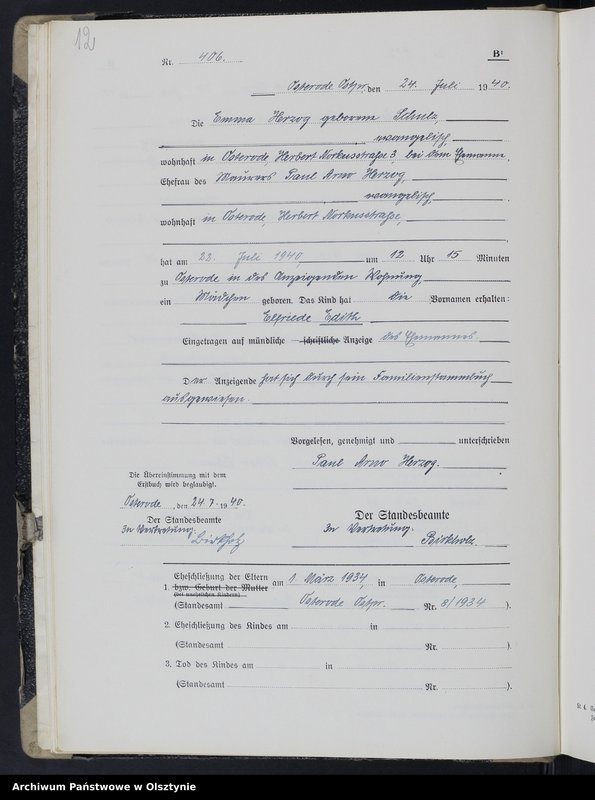 12
Nr. 406. B¹
Osterode Ostpr, den 24. Juli 1940.
Die Emma Herzog geborene Schulz,
evangelisch,
wohnhaft in Osterode, Herbert Norkusstraße 3, bei dem Ehemann,
Ehefrau des Maurers Paul Arno Herzog,
evangelisch,
wohnhaft in Osterode, Herbert Norkusstraße,
hat am 22. Juli 1940, um 12 Uhr 15 Minuten
zu Osterode in des Anzeigenden Wohnung
ein Mädchen geboren. Das Kind hat die Vornamen erhalten:
Elfriede Edith
Eingetragen auf mündliche schriftliche Anzeige des Ehemannes.
Der Anzeigende hat sich durch sein Familienstammbuch
ausgewiesen.
Vorgelesen, genehmigt und unterschrieben
Paul Arno Herzog.
Die Übereinstimmung mit dem
Erstbuch wird beglaubigt.
Osterode, den 24.7.1940.
Der Standesbeamte
In Vertretung.
Birkholz
Der Standesbeamte
In Vertretung.
Birkholz
1. Eheschließung der Eltern
bzw. Geburt der Mutter
(bei unehelichen Kindern)
am 1. März 1934, in Osterode,
(Standesamt Osterode Ostpr. Nr. 8/1934 ).
2. Eheschließung des Kindes am in
(Standesamt Nr. ).
3. Tod des Kindes am in
(Standesamt Nr. ).
Archiwum Państwowe w Olsztynie